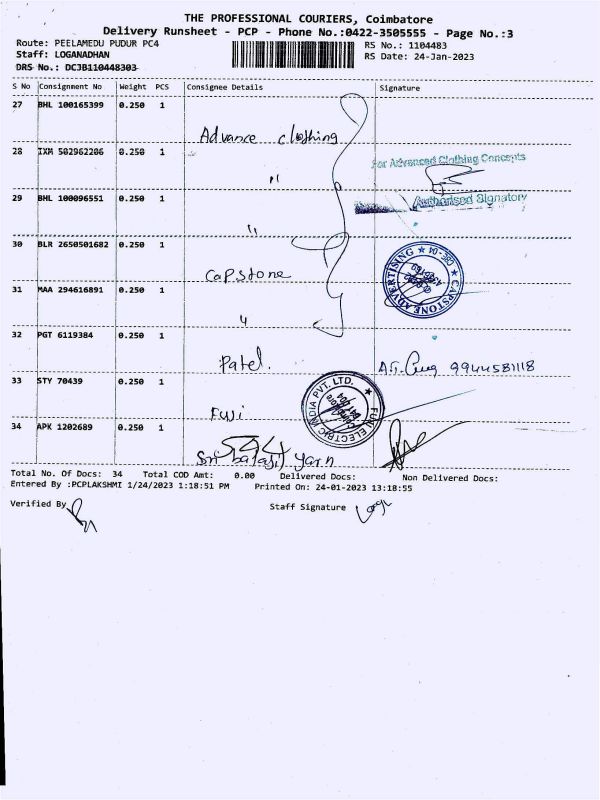 THE PROFESSIONAL COURIERS, Coimbatore
Delivery Runsheet - PCP - Phone No.:0422-3505555 - Page No.:3
Route: PEELAMEDU PUDUR PC4 RS No.: 1104483
Staff: LOGANADHAN RS Date: 24-Jan-2023
DRS No.: DCJB110448303
S No Consignment No Weight PCS Consignee Details Signature
27 BHL 100165399 0.250 1
Advance clothing
28 IXM 502962206 0.250 1
For Advanced Clothing Concepts
"
29 BHL 100096551 0.250 1
Authorised Signatory
"
30 BLR 2650501682 0.250 1
Capstone
CAPSTONE ADVERTISING ★ CBE-04 ★
31 MAA 294616891 0.250 1
"
32 PGT 6119384 0.250 1
Patel. 9944581118
33 STY 70439 0.250 1
Fuji
FUJI ELECTRIC INDIA PVT. LTD. ★
34 APK 1202689 0.250 1
Sri balaji yarn
Total No. Of Docs: 34 Total COD Amt: 0.00 Delivered Docs: Non Delivered Docs:
Entered By :PCPLAKSHMI 1/24/2023 1:18:51 PM Printed On: 24-01-2023 13:18:55
Verified By Staff Signature